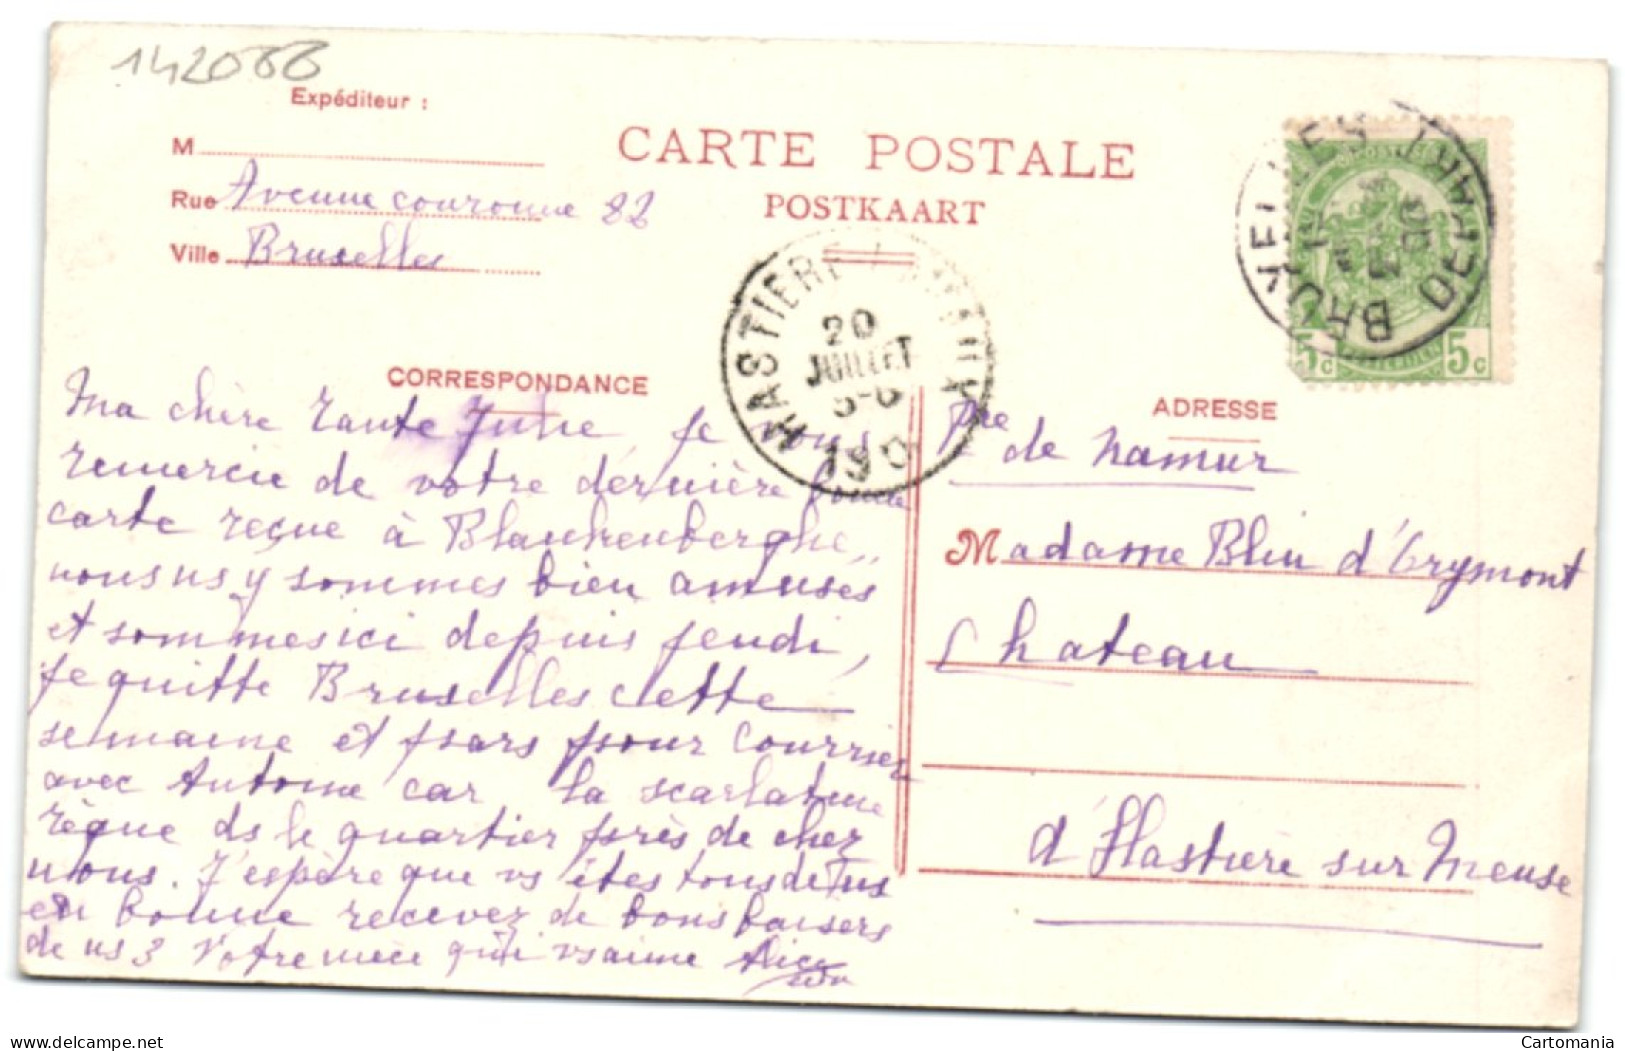 142066
Expéditeur :
M
Rue Avenue couronne 82
Ville Bruxelles
CARTE POSTALE
POSTKAART
BRUXELLES DEPART
5c 5c
HASTIERE
20
JUILLET
5-6
190
CORRESPONDANCE
Ma chère tante Julie, je vous
remercie de votre dernière
carte reçue à Blankenberghe,
nous ns y sommes bien amusés
et sommes ici depuis jeudi,
je quitte Bruxelles cette
semaine et pars pour Courrier
avec Antoine car la scarlatine
règne ds le quartier près de chez
nous. J'espère que vs êtes tous de
en bonne recevez de bons baisers
de ns 3 Votre nièce qui vs aime Alice
ADRESSE
Pre de Namur
Madame Blin d'Orymont
Chateau
d'Hastière sur Meuse
delcampe.net
Cartomania